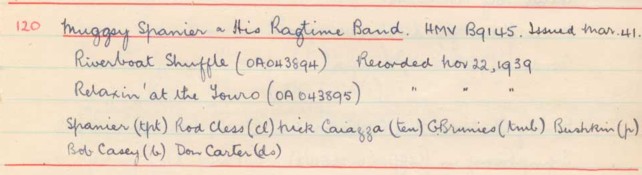 120 Muggsy Spanier & His Ragtime Band. HMV B9145. Issued Mar. 41.
Riverboat Shuffle (OA043894) Recorded Nov 22, 1939
Relaxin' at the Touro (OA043895) " " "
Spanier (tpt) Rod Cless (cl) Nick Caiazza (ten) G. Brunies (tmb) Bushkin (p)
Bob Casey (b) Don Carter (ds)